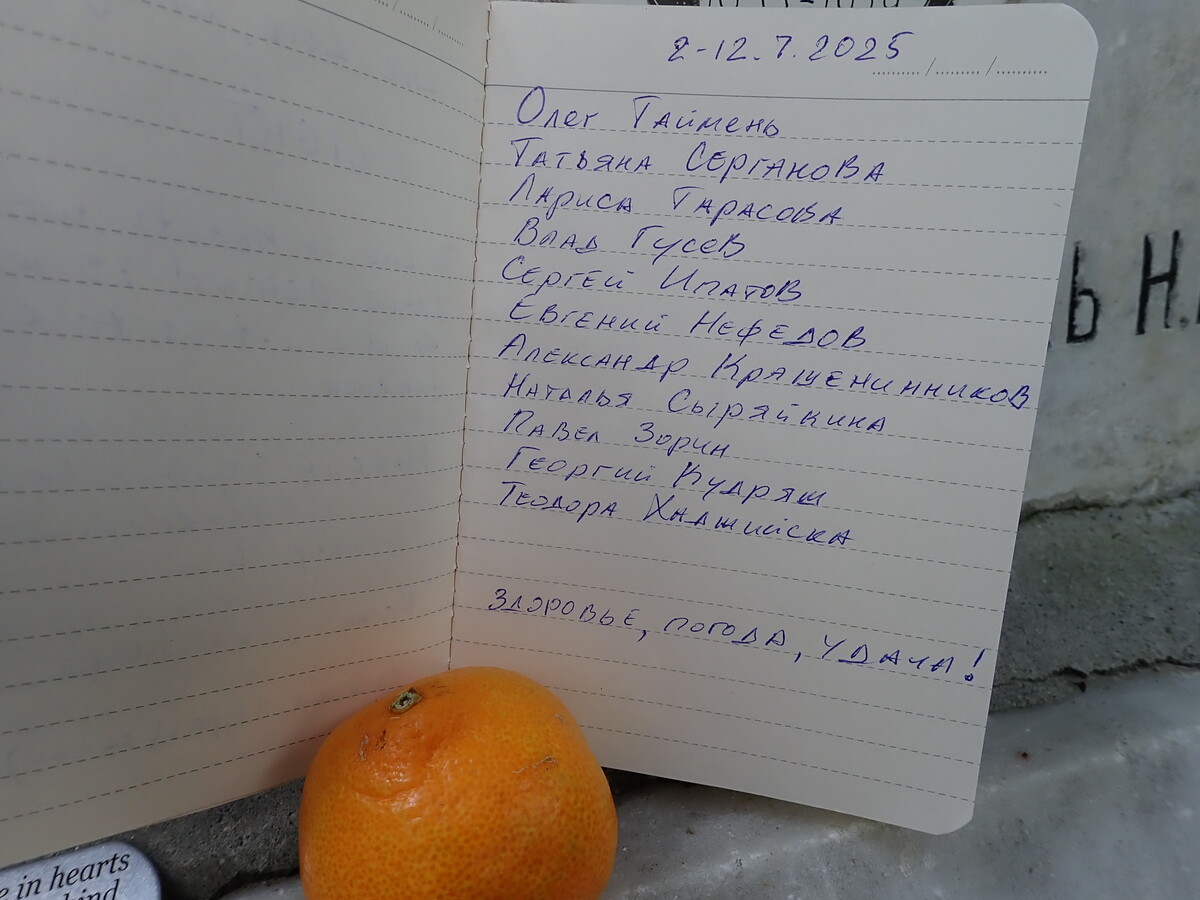 2-12.7.2025
Олег Таймень
Татьяна Серганова
Лариса Тарасова
Влад Гусев
Сергей Ипатов
Евгений Нефедов
Александр Крашенинников
Наталья Сыряйкина
Павел Зорин
Георгий Кудряш
Теодора Хадшийска
Здоровье, погода, удачи!
Ь Н.
in hearts